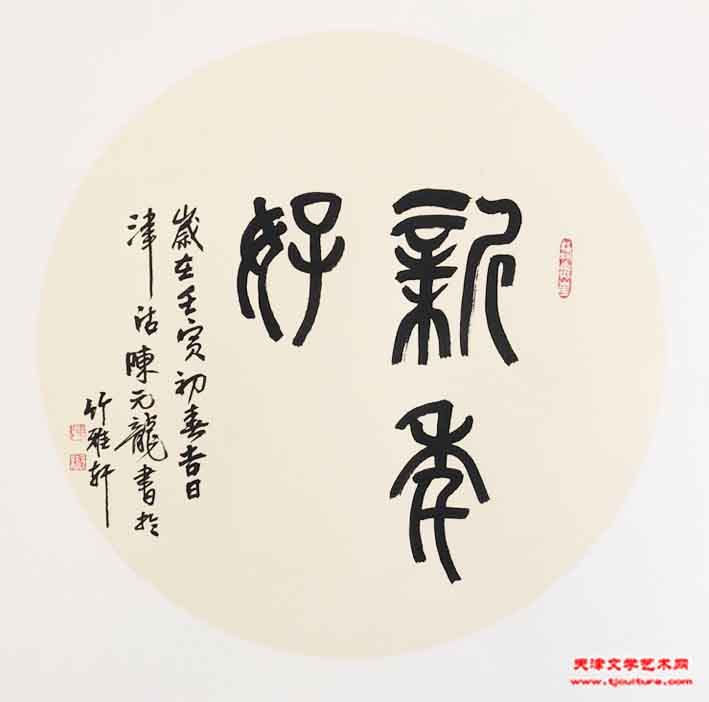 新年
好
歲在壬寅初春吉日
津沽陳元龍書於
竹雅軒
天津文学艺术网
www.tjculture.com